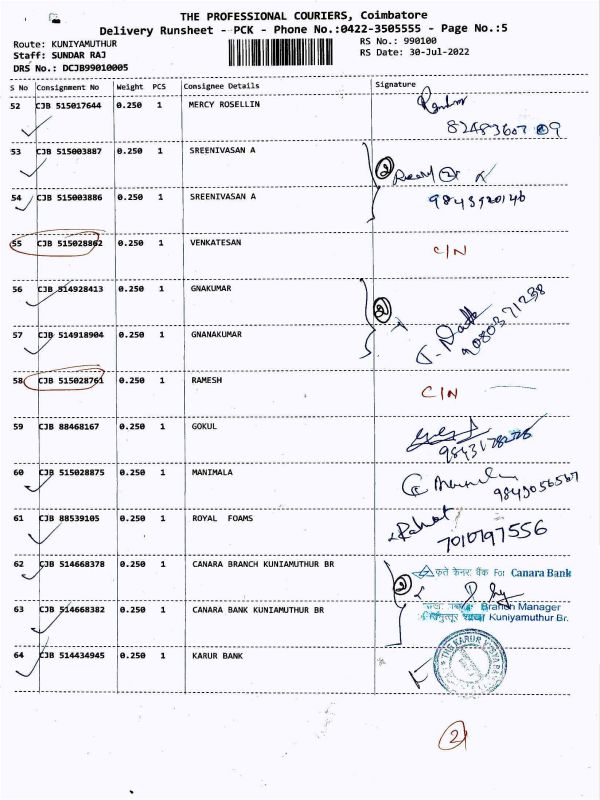 THE PROFESSIONAL COURIERS, Coimbatore
Delivery Runsheet - PCK - Phone No.:0422-3505555 - Page No.:5
Route: KUNIYAMUTHUR RS No.: 990100
Staff: SUNDAR RAJ RS Date: 30-Jul-2022
DRS No.: DCJB99010005
S No Consignment No Weight PCS Consignee Details Signature
52 CJB 515017644 0.250 1 MERCY ROSELLIN
53 CJB 515003887 0.250 1 SREENIVASAN A
2
54 CJB 515003886 0.250 1 SREENIVASAN A
55 CJB 515028862 0.250 1 VENKATESAN C/N
56 CJB 514928413 0.250 1 GNAKUMAR
2
57 CJB 514918904 0.250 1 GNANAKUMAR
58 CJB 515028761 0.250 1 RAMESH C/N
59 CJB 88468167 0.250 1 GOKUL
60 CJB 515028875 0.250 1 MANIMALA
61 CJB 88539105 0.250 1 ROYAL FOAMS
7010797556
62 CJB 514668378 0.250 1 CANARA BRANCH KUNIAMUTHUR BR कृते केनरा बैंक For Canara Bank
2
63 CJB 514668382 0.250 1 CANARA BANK KUNIYAMUTHUR BR Branch Manager
Kuniyamuthur Br.
64 CJB 514434945 0.250 1 KARUR BANK
THE KARUR VYSYA BANK
2